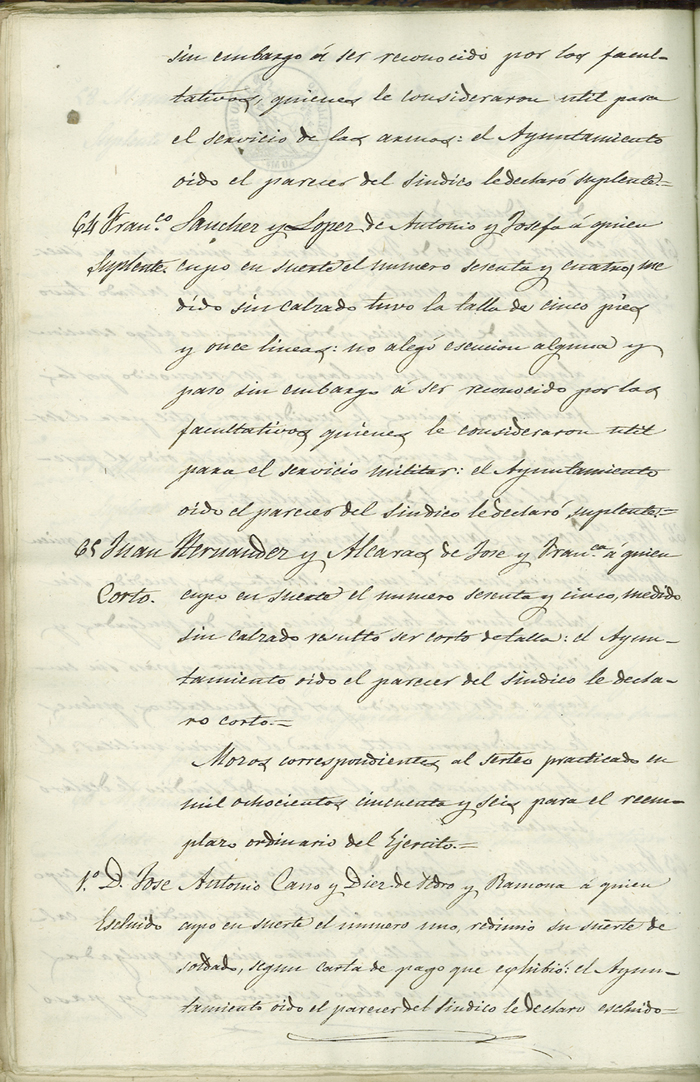 sin embargo á ser reconocido por los facul-
tativos, quienes le consideraron util para
el servicio de las armas: el Ayuntamiento
oido el parecer del Sindico le declaró suplente.=
64 Fran.co Sanchez y Lopez de Antonio y Josefa á quien
Suplente. cupo en suerte el numero sesenta y cuatro, me
dido sin calzado tuvo la talla de cinco pies
y once lineas: no alegó escucion alguna y
paso sin embargo á ser reconocido por los
facultativos quienes le consideraron util
para el servicio militar: el Ayuntamiento
oido el parecer del Sindico le declaró suplente.=
65 Juan Hernandez y Alcaraz de Jose y Fran.ca á quien
Corto. cupo en suerte el numero sesenta y cinco, medido
sin calzado resultó ser corto de talla: el Ayun-
tamiento oido el parecer del Sindico le decla-
ro corto.=
Mozos correspondientes al sorteo practicado en
mil ochocientos cincuenta y seis para el reem-
plazo ordinario del Ejercito.=
1.º D. Jose Antonio Cano y Diez de Pedro y Ramona á quien
Escluido cupo en suerte el numero uno, redimio su suerte de
soldado, segun carta de pago que exhibió: el Ayun-
tamiento oido el parecer del Sindico le declaro escluido=